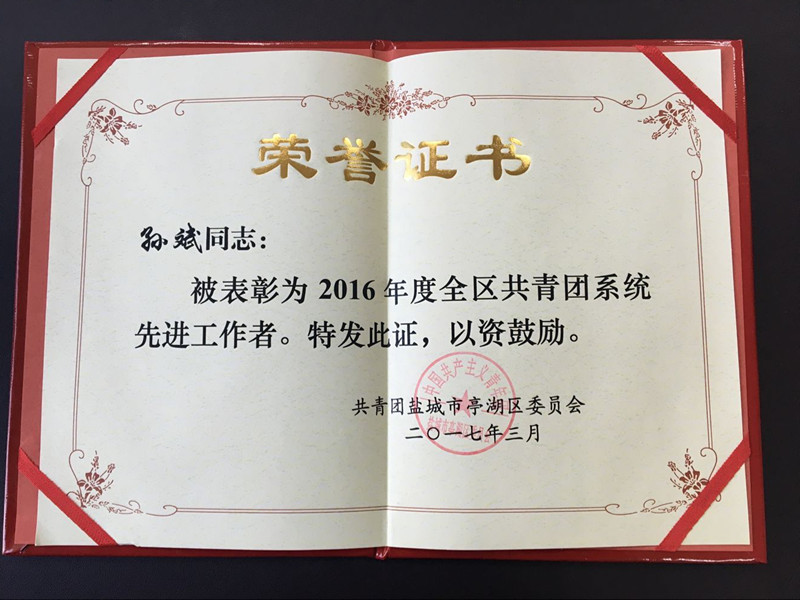 荣誉证书
孙斌同志：
被表彰为 2016 年度全区共青团系统
先进工作者。特发此证，以资鼓励。
中国共产主义青年团
共青团盐城市亭湖区委员会
二〇一七年三月